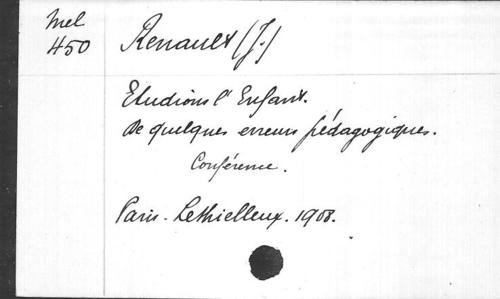 Mel
450
Renault (J.)
Etudions l'Enfant.
De quelques erreurs pédagogiques.
Conférence.
Paris - Lethielleux. 1908.